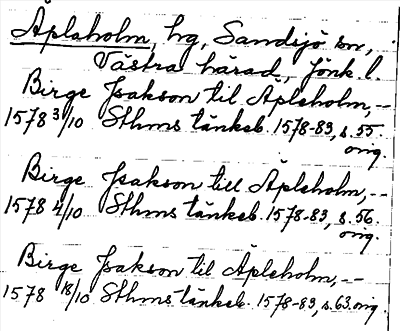 Äplaholm, hg, Sandsjö sn,
Västra härad, Jönk. l.
Birge Isakson til Äpleholm, --
1578 3/10 Sthms tänkeb. 1578-83, s. 55.
orig.
Birge Isakson till Äpleholm, --
1578 4/10 Sthms tänkeb. 1578-83, s. 56.
orig.
Birge Isakson til Äpleholm, --
1578 18/10 Sthms tänkeb. 1578-83, s. 63. orig.